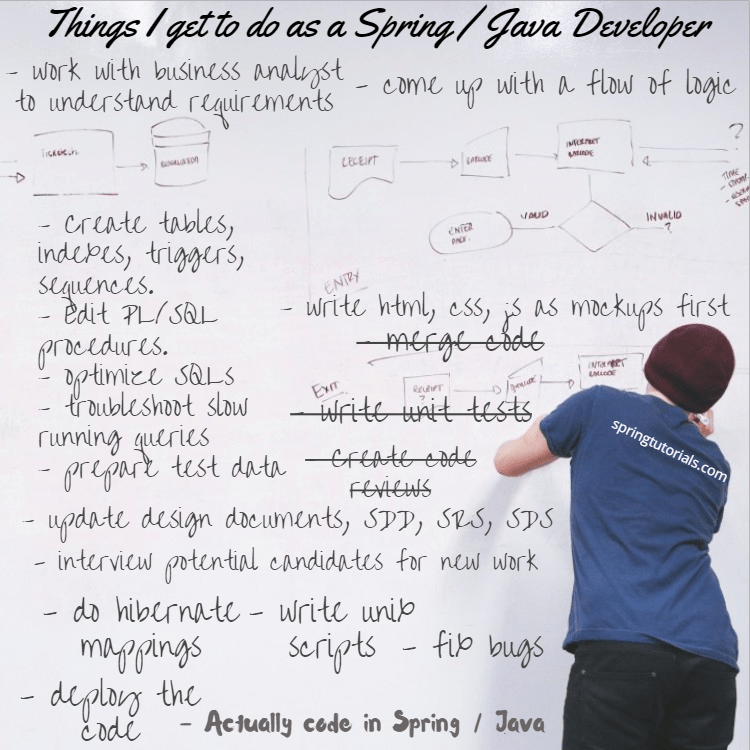 Things I get to do as a Spring / Java Developer
- work with business analyst
to understand requirements
- come up with a flow of logic
RECEIPT
BARCODE
INTERPRET
BARCODE
?
TIME
ENTER
VALID
INVALID
?
- Create tables,
indexes, triggers,
sequences.
- Edit PL/SQL
procedures.
- optimize SQLs
- troubleshoot slow
running queries
- prepare test data
ENTRY
- write html, css, js as mockups first
- merge code
EXIT
RECEIPT
?
INTERPRET
BARCODE
- write unit tests
- Create code
reviews
springtutorials.com
- update design documents, SDD, SRS, SDS
- interview potential candidates for new work
- do hibernate
mappings
- write unix
scripts
- fix bugs
- deploy the
code
- Actually code in Spring / Java